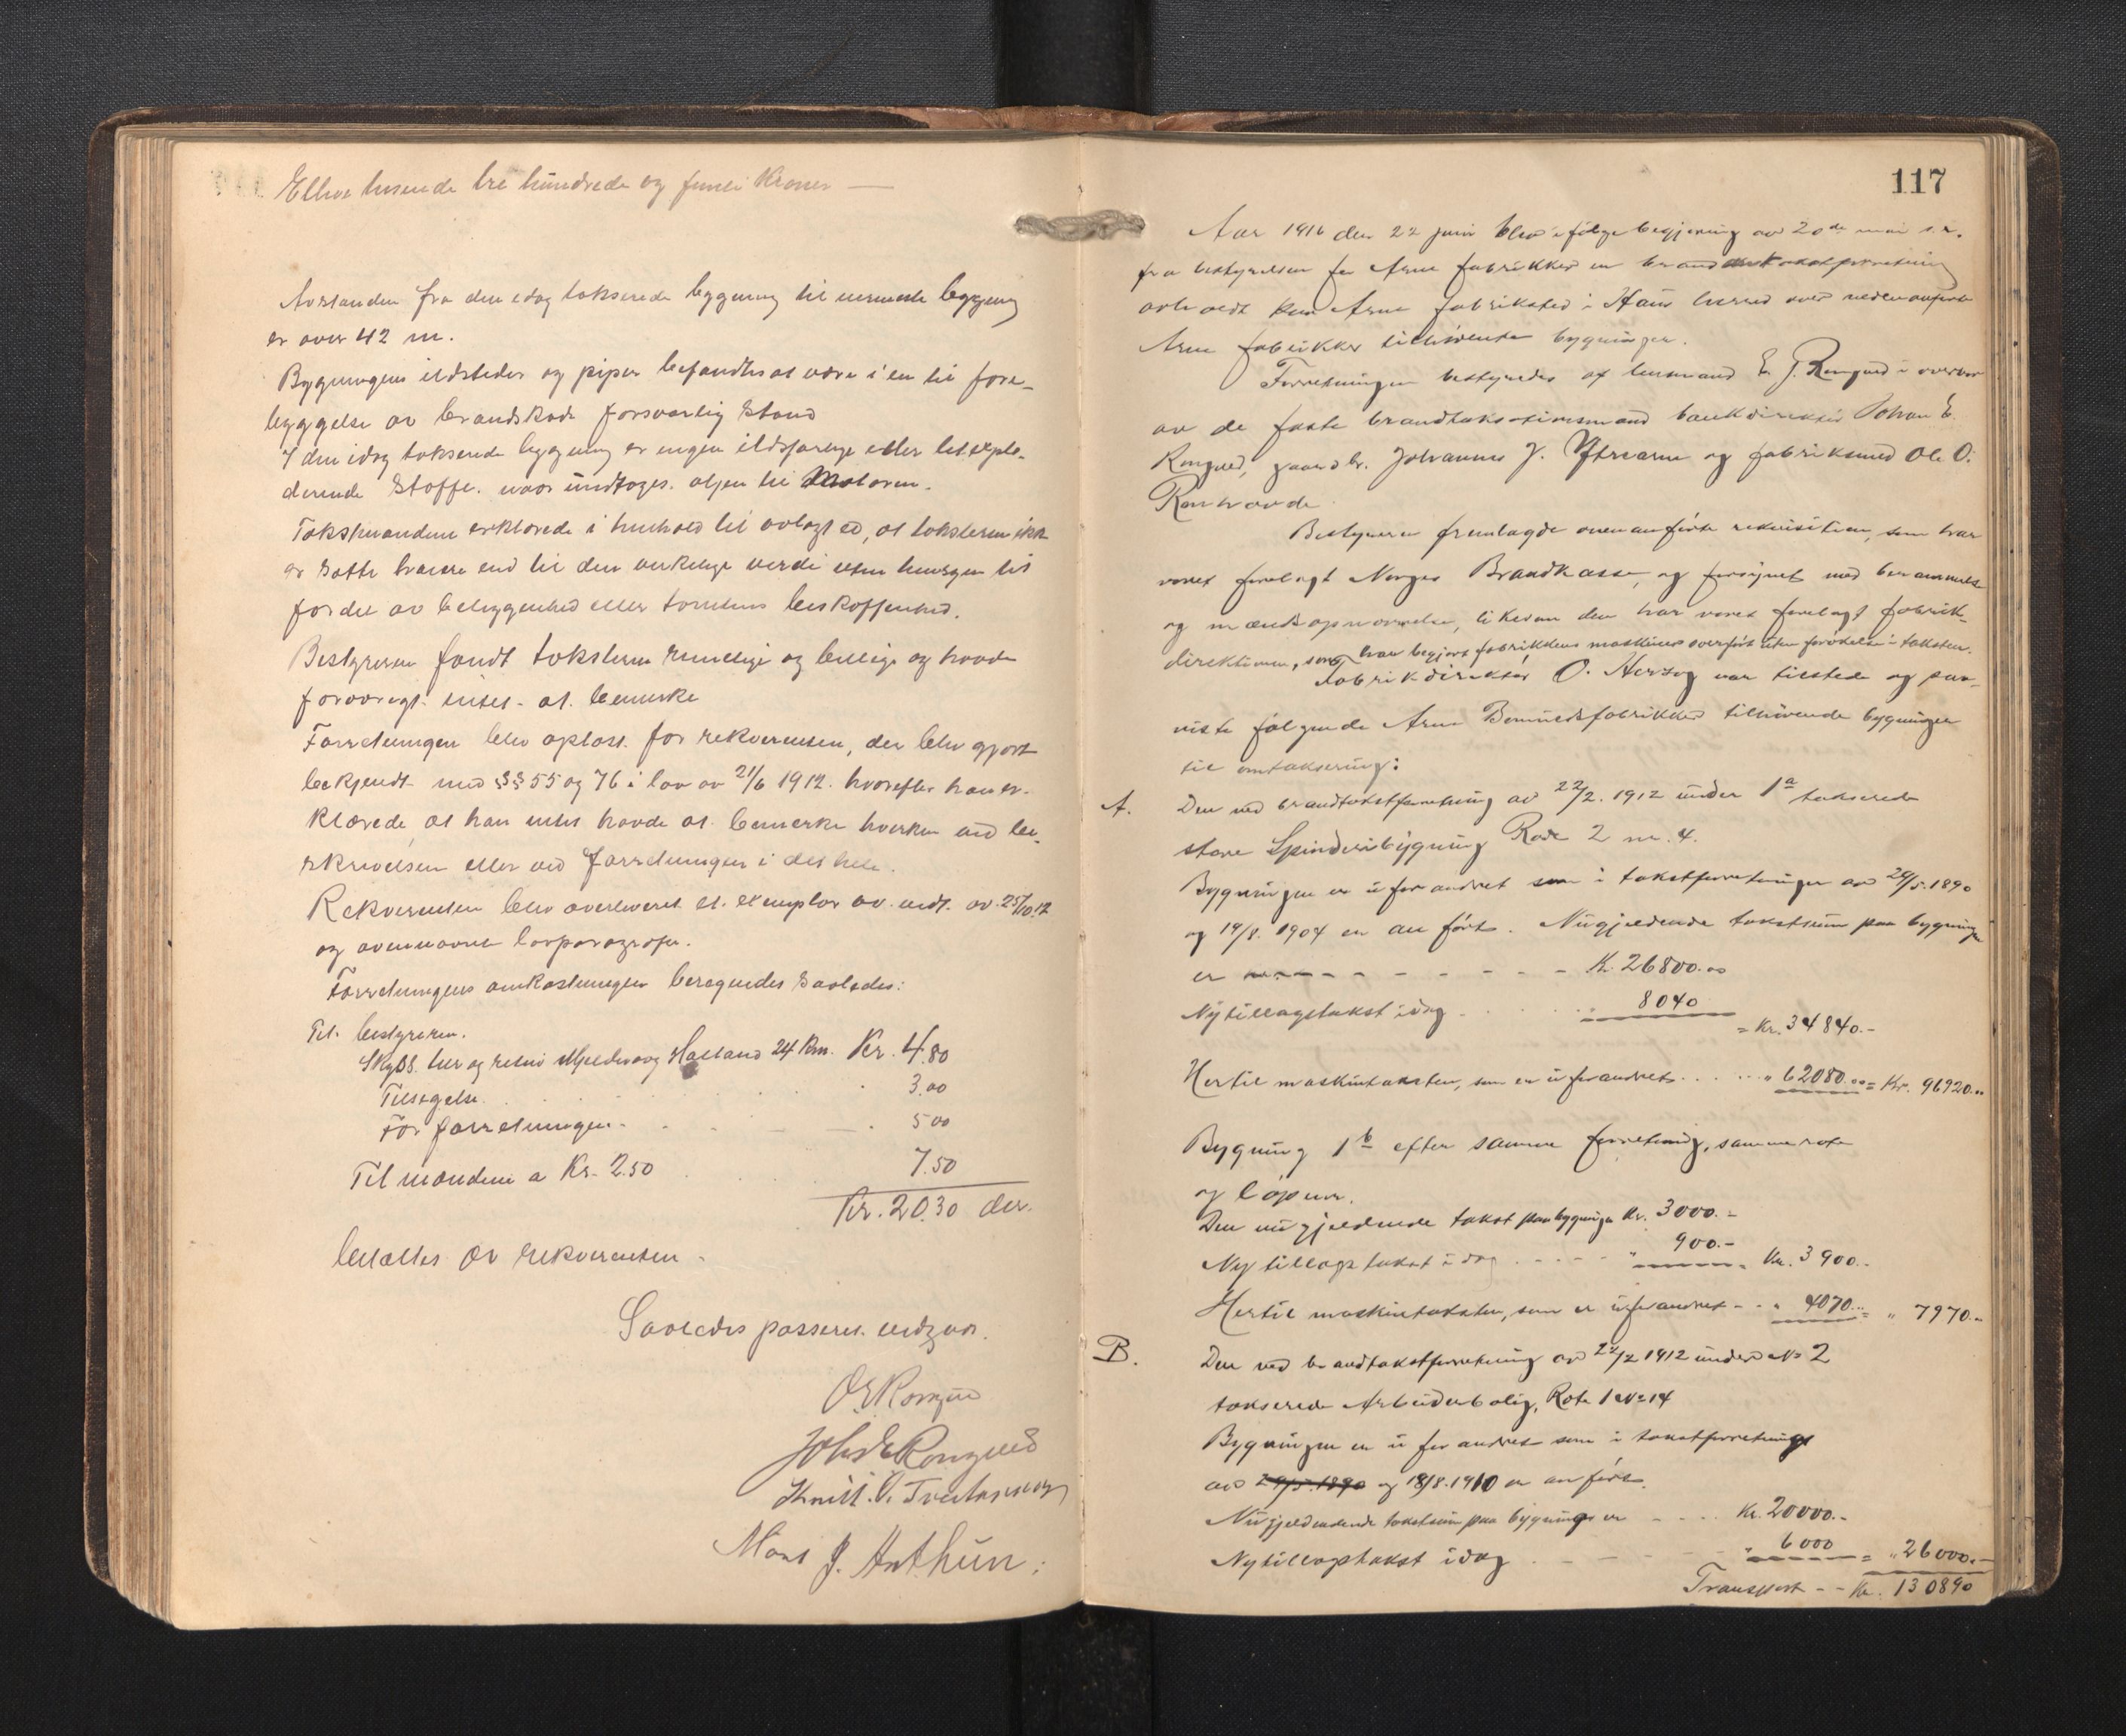 Elleve tusende tre hundrede og femti Kroner —
Avstanden fra den idag takserede bygning til nærmeste bygning
er over 42 m.
Bygningens ildsteder og piper befandtes at være i en til fore-
byggelse av brandskade forsvarlig stand
I den idag takserede bygning er ingen ildsfarlige eller let explo-
derende stoffe. naar undtages. oljen til Motoren.
Takstmændene erklærede i henhold til avlagt ed, at taksterne ikke
er satte høiere end til den virkelige verdi uten hensyn til
fordel av beliggenhed eller tomtens beskaffenhed.
Bestyreren fandt taksterne rimelige og billige og havde
forøvrigt intet at bemerke
Forretningen blev oplæst for rekvirenten, der blev gjort
bekjendt med §§ 55 og 76 i lov av 21/6 1912. hvorefter han er-
klærede at han intet havde at bemerke hverken ved be-
skrivelsen eller ved forretningen i det hele.
Rekvirenten blev overleveret et exemplar av vedt. av 25/10.12
og ovennævnte lovparagrafer.
Forretningens omkostninger beregnedes saaledes:
Til bestyreren.
Skyds her og retur Mjeldevaag Hatland 24 km. Kr. 4.80
Tilsigelse. 3.00
For forretningen. 5 00
Til mændene a Kr. 2.50 7.50
Kr. 20.30 der.
betaltes av rekvirenten -
Saaledes passeret vidner.
O E Romgve
Johs E Romgved
Knut. O. Tveitnes
Mons J. Arthun.
117
Aar 1916 den 22 juni blev ifølge begjæring av 20de mai s. a.
fra bestyrelsen for Arne fabrikker en brandtakstforretning
avholdt paa Arne fabriksted i Haus herred over nedenanførte
Arne fabrikker tilhørende bygninger.
Forretningen bestyredes af lensmand E. J. Romgved i overvær
av de faste brandtakstmænd bankdirektør Johan E.
Romgved, gaardbr. Johannes J. Ytrearne og fabrikmed Ole O.
Bestyreren fremlagde ovenanførte rekvisition, som har
været forelagt Norges Brandkasse, og forsynet med berammelse
og mændsopnævnelse, likesom den har været forelagt fabrik-
direktionen, som har begjært fabrikkens maskiner overført uten forøkelse i taksten.
Fabrikdirektør O. Herzog var tilstede og paa-
viste følgende Arne Bomuldsfabrikker tilhørende bygninger
til omtaksering:
A. Den ved brandtakstforretning av 22/2. 1912 under 1a takserede
store Spinderibygning Rode 2 nr. 4.
Bygningen er uforandret som i takstforretninger av 29/5. 1890
og 19/8. 1904 er anført. Nugjeldende takstsum paa bygningen
er - - - - - - Kr. 26800.00
Ny tillægstakst idag . . . . 8040 = Kr. 34840.-
Hertil maskintaksten, som er uforandret . . . . " 62080.00 = Kr. 96920.00
Bygning 1b efter samme forretning, samme rote
og løpenr.
Den nugjeldende takst paa bygningen Kr. 3000.-
Ny tillægstakst idag . - - - " 900.- = Kr. 3900.-
Hertil maskintaksten, som er uforandret - - " 4070.- = " 7970.-
B. Den ved brandtakstforretning av 22/2 1912 under No 2
takserede Arbeiderbolig, Rote 1 No 14
Bygningen er uforandret som i takstforretninger
av 29/5. 1890 og 18/8. 1910 er anført.
Nugjeldende takstsum paa bygningen er - - . . Kr. 20000.-
Ny tillægstakst idag . - - - " 6000 = " 26000.-
Transport - - Kr. 130890